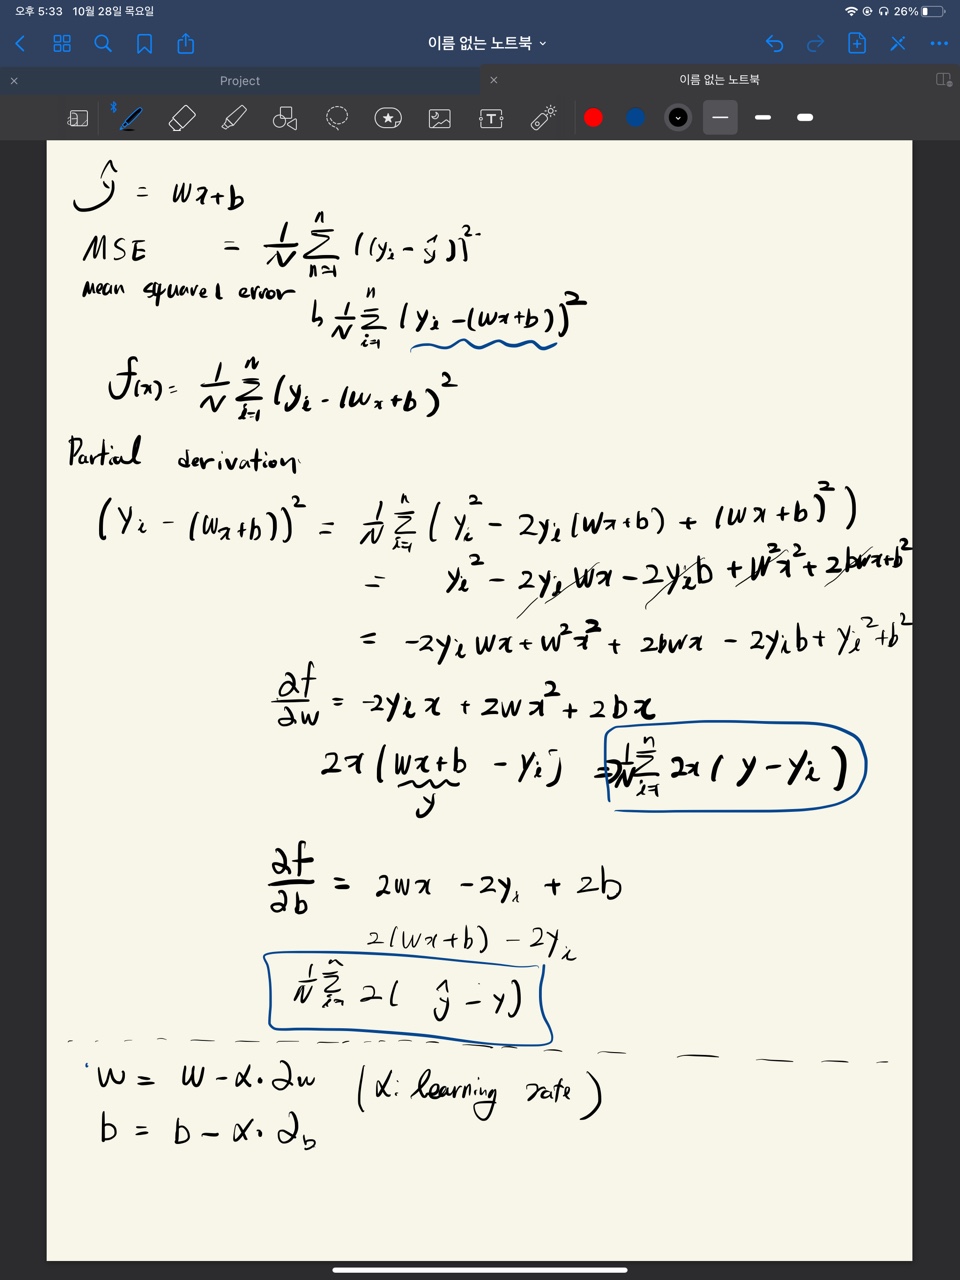 오후 5:33 10월 28일 목요일 26%
이름 없는 노트북
Project 이름 없는 노트북
ŷ = wx+b
MSE = 1/N Σ_{n=1}^{n} ((y_i - ŷ))^2
mean squared error
1/N Σ_{i=1}^{n} (y_i -(wx+b))^2
f(x) = 1/N Σ_{i=1}^{n} (y_i - (wx+b)^2
Partial derivation
(y_i - (wx+b))^2 = 1/N Σ_{i=1}^{n} (y_i^2 - 2y_i(wx+b) + (wx+b)^2)
= y_i^2 - 2y_i wx - 2y_i b + w^2x^2 + 2bwx+b^2
= -2y_i wx + w^2x^2 + 2bwx - 2y_i b + y_i^2 + b^2
∂f/∂w = -2y_i x + 2wx^2 + 2bx
2x(wx+b - y_i) = 1/N Σ_{i=1}^{n} 2x(y - y_i)
y
∂f/∂b = 2wx - 2y_i + 2b
2(wx+b) - 2y_i
1/N Σ_{i=1}^{n} 2( ŷ - y)
w = w - α·∂w (α: learning rate)
b = b - α·∂_b